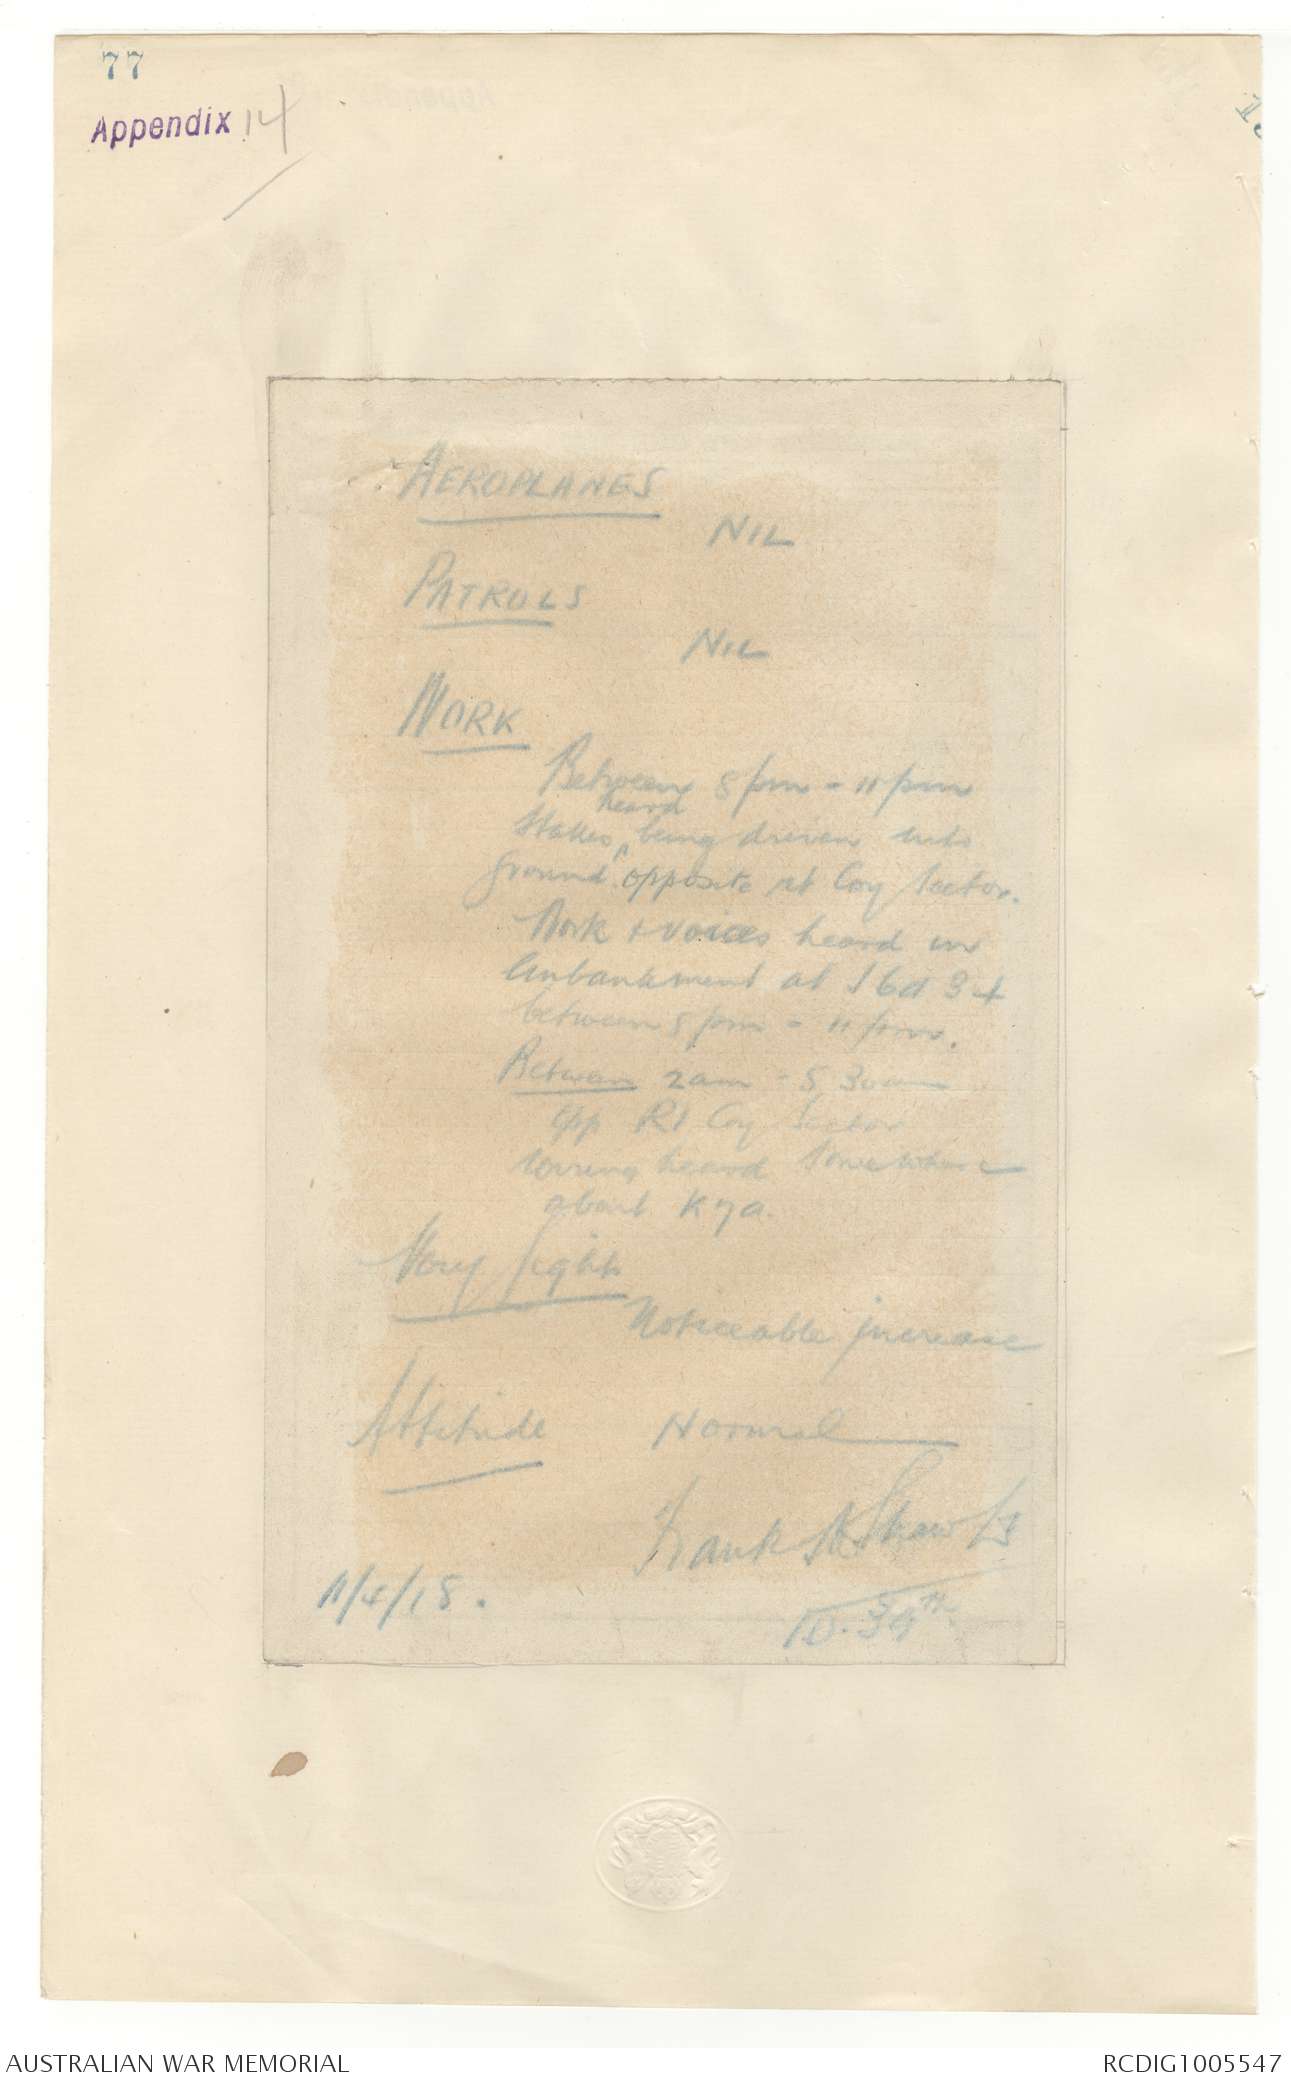 77
Appendix 14
AEROPLANES
NIL
PATROLS
NIL
WORK
Between 8 pm - 11 pm
heard
Stakes ^ being driven into
ground opposite rt Coy Sector.
Work + voices heard in
Embankment at J 6 d 3 4
between 8 pm - 11 pm.
Between 2 am - 5 30 am
opp Rt Coy Sector
wiring heard somewhere
about K 7 a.
Very Lights
Noticeable increase
Attitude Normal
Frank Shaw Lt
11/4/18.
I.O. 34th
AUSTRALIAN WAR MEMORIAL
RCDIG1005547